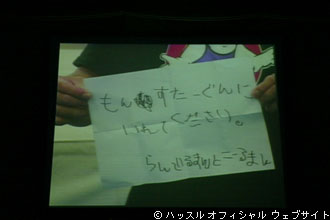 もんすたーぐんに
いれてください。
らんじぇりとこーるまん
© ハッスル オフィシャル ウェブサイト